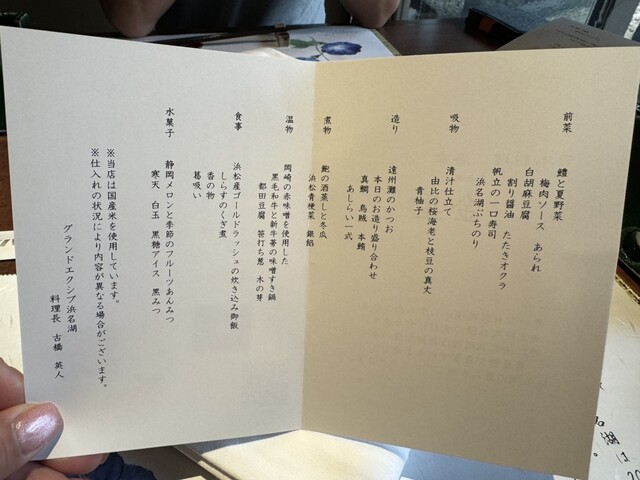 前菜
鱧と夏野菜
梅肉ソース　あられ
白胡麻豆腐
割り醤油　たたきオクラ
帆立の一口寿司
浜名湖ぷちのり
吸物
清汁仕立て
由比の桜海老と枝豆の真丈
青柚子
造り
遠州灘のかつお
本日のお造り盛り合わせ
真鯛　烏賊　本鮪
あしらい一式
煮物
鮑の酒蒸しと冬瓜
浜松青梗菜　銀餡
温物
岡崎の赤味噌を使用した
黒毛和牛と新牛蒡の味噌すき鍋
都田豆腐　笹打ち葱　木の芽
食事
浜松産ゴールドラッシュの炊き込み御飯
しらすのくぎ煮
香の物
葛吸い
水菓子
静岡メロンと季節のフルーツあんみつ
寒天　白玉　黒糖アイス　黒みつ
※当店は国産米を使用しています。
※仕入れの状況により内容が異なる場合がございます。
グランドエクシブ浜名湖
料理長　古橋　英人